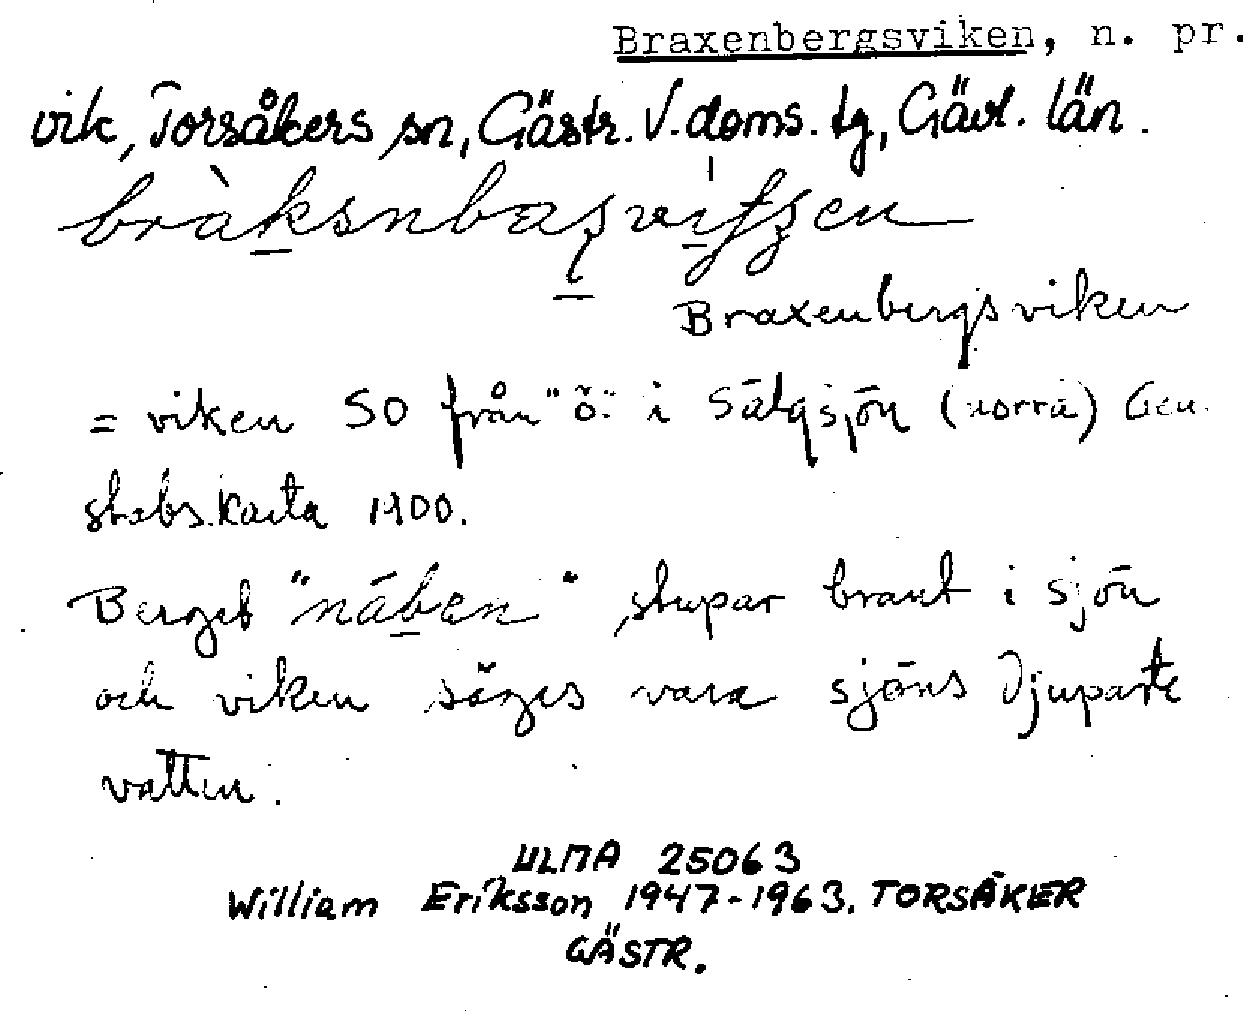 Braxenbergsviken, n. pr.
vik, Torsåkers sn, Gästr. V. doms. tg, Gävl. län.
Braxenbergsviken
= viken SO från "ö" i Sälgsjön (norra) Gen.
stabs.karta 1900.
Berget "näben" stupar brant i sjön
och viken säges vara sjöns djupaste
vatten.
ULMA 25063
William Eriksson 1947-1963. TORSÅKER
GÄSTR.